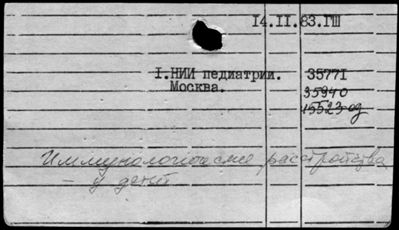 14.II.83.ГШ
I.НИИ педиатрии. 35771
Москва. 35940
15523од
Иммунологические расстройства
- у детей